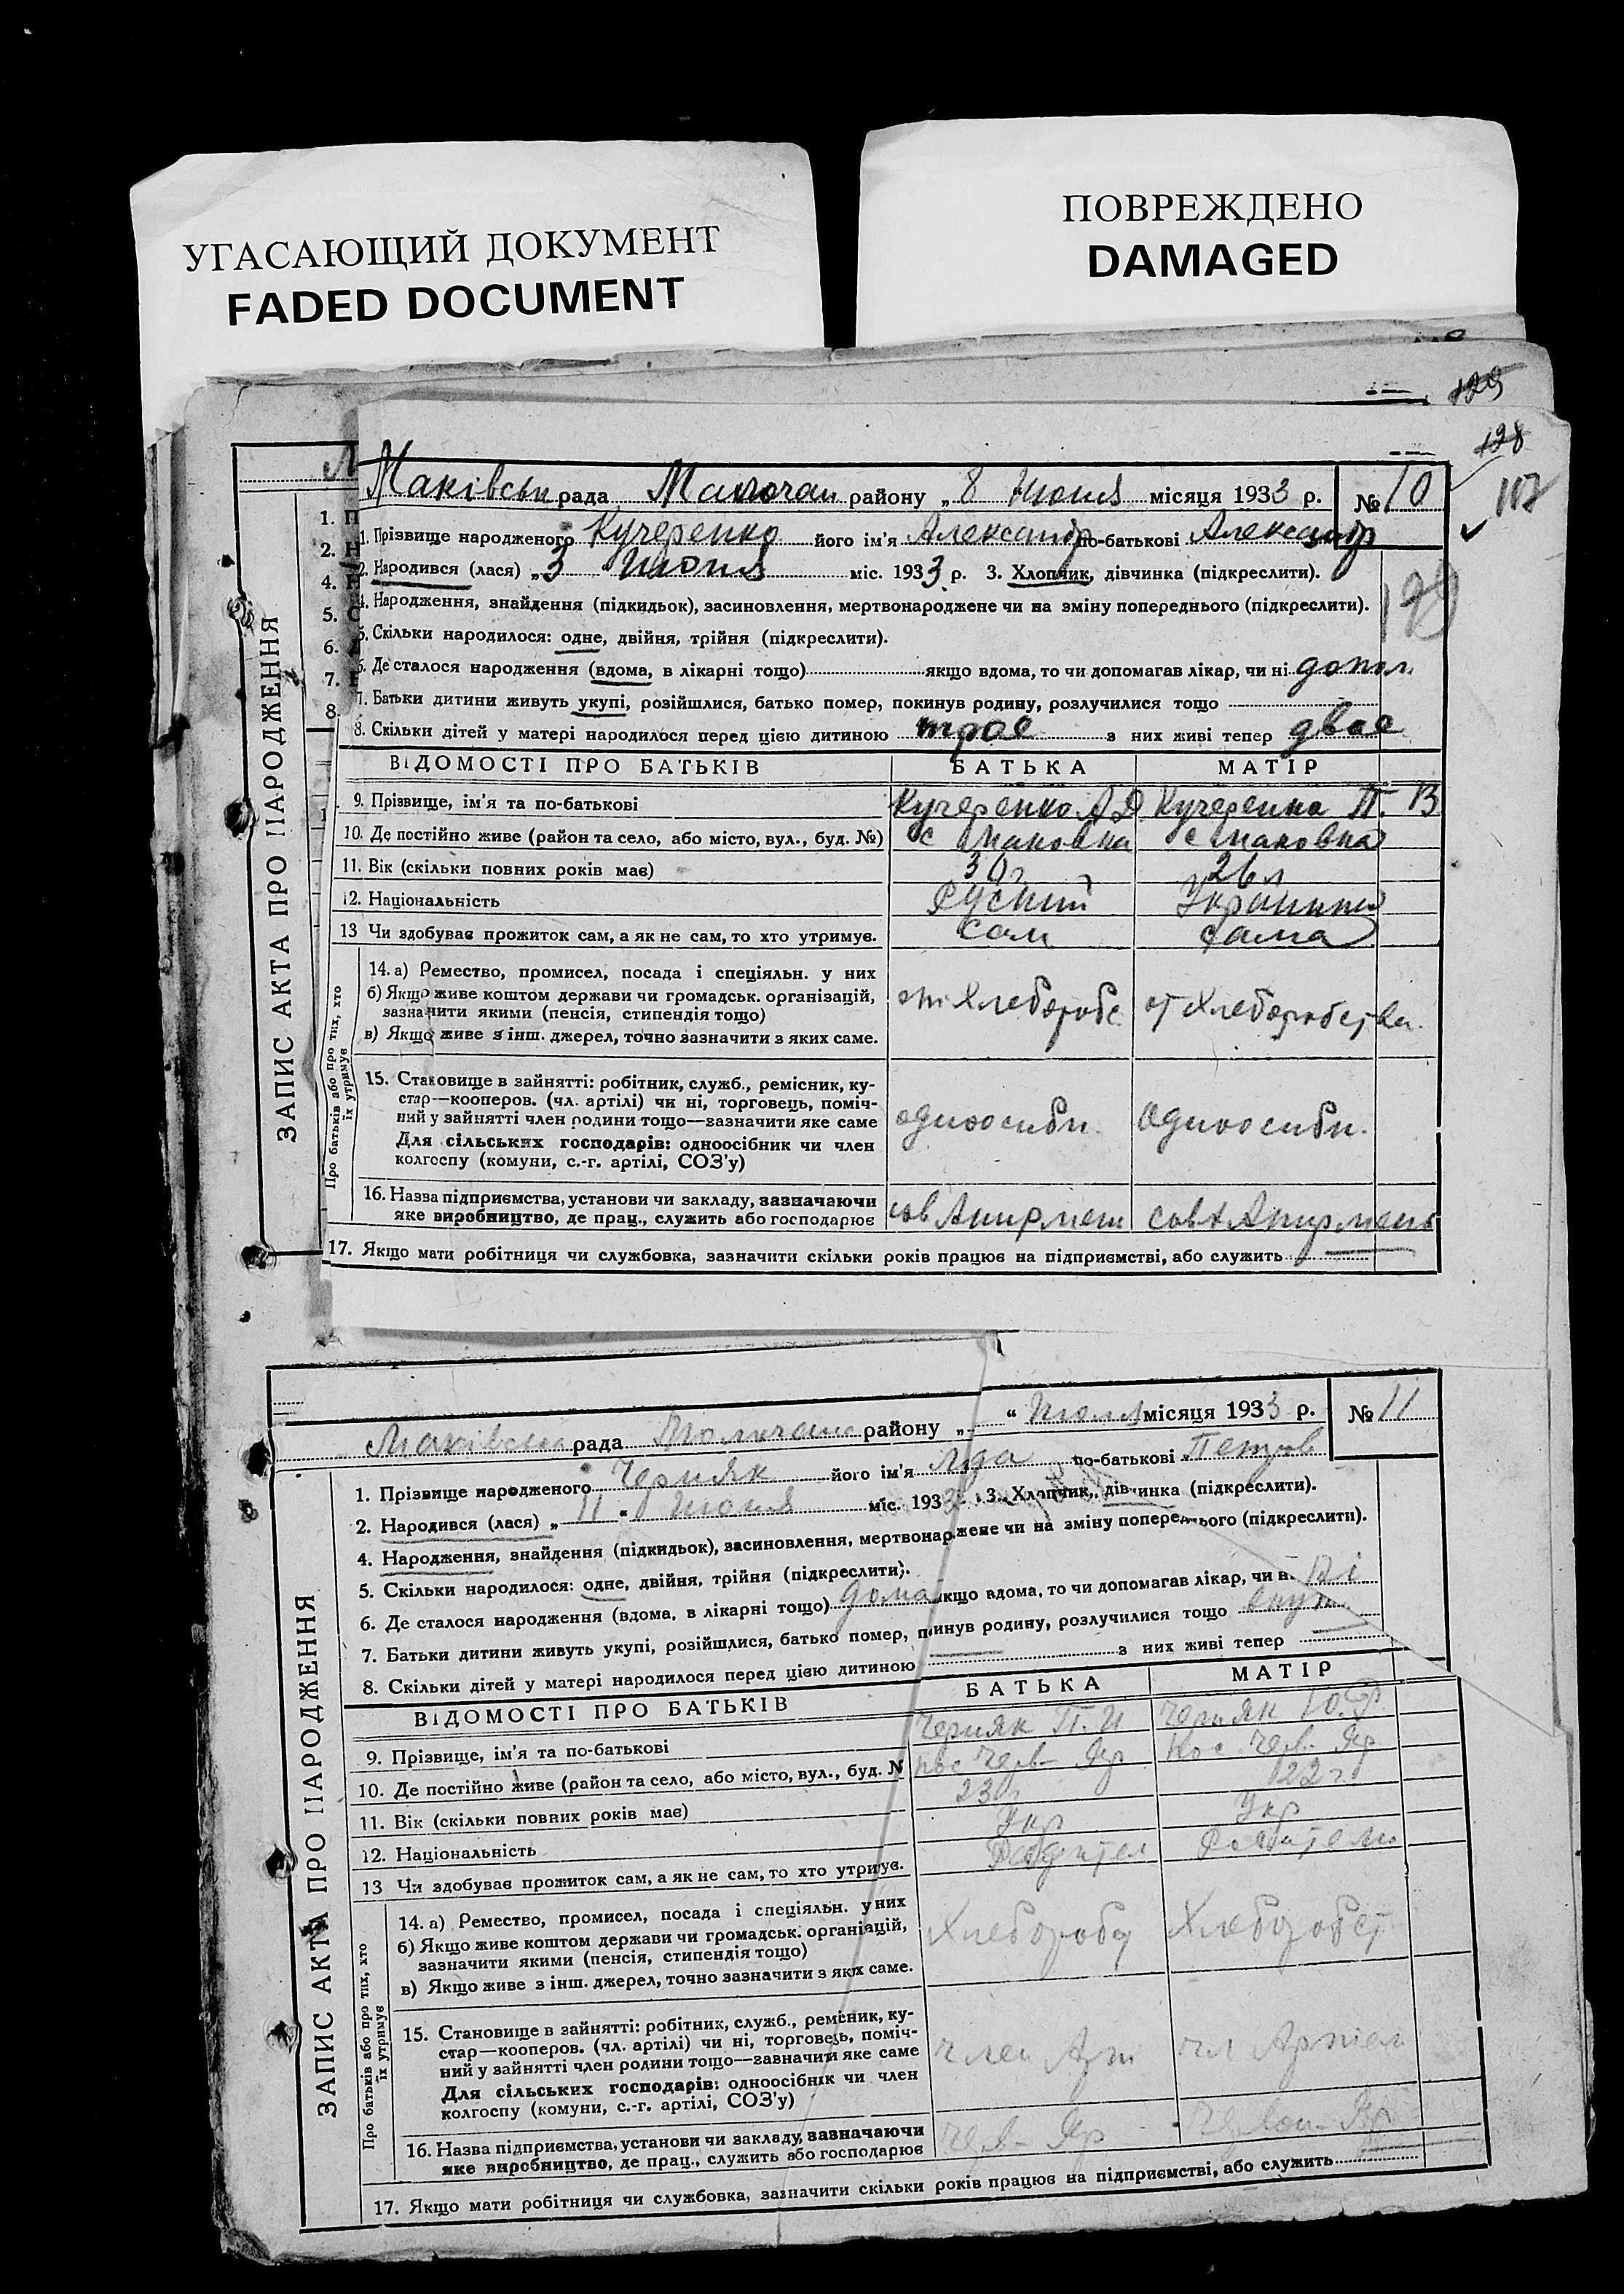 УГАСАЮЩИЙ ДОКУМЕНТ
FADED DOCUMENT
ПОВРЕЖДЕНО
DAMAGED
129
128
107
129
ЗАПИС АКТА ПРО НАРОДЖЕННЯ
1. П
2. Н
4. Н
5. С
6.
7.
8.
Маківськ рада район у „ 8 Июня місяця 1933 р. № 10
1. Прізвище народженого Кучеренко його ім'я Александр по-батькові Александр
2. Народився (лася) „ 3 Июня міс. 1933 р. 3. Хлопчик, дівчинка (підкреслити).
4. Народження, знайдення (підкидьок), засиновлення, мертвонароджене чи на зміну попереднього (підкреслити).
5. Скільки народилося: одне, двійня, трійня (підкреслити).
6. Де сталося народження (вдома, в лікарні тощо) якщо вдома, то чи допомагав лікар, чи ні допом.
7. Батьки дитини живуть укупі, розійшлися, батько помер, покинув родину, розлучилися тощо
8. Скільки дітей у матері народилося перед цією дитиною трое з них живі тепер двое
ВІДОМОСТІ ПРО БАТЬКІВ БАТЬКА МАТІР
9. Прізвище, ім'я та по-батькові Кучеренко А Д Кучеренка П. В
10. Де постійно живе (район та село, або місто, вул., буд. №) с Маковка с Маковка
11. Вік (скільки повних років має) 30 г 26 л
12. Національність Руский Украинка
13 Чи здобуває прожиток сам, а як не сам, то хто утримує. Сам сама
Про батьків або про тих, хто їх утримує
14. а) Ремество, промисел, посада і спеціяльн. у них
б) Якщо живе коштом держави чи громадськ. організацій,
зазначити якими (пенсія, стипендія тощо)
в) Якщо живе з інш. джерел, точно зазначити з яких саме.
от Хлебороб от Хлеборобства
15. Становище в зайнятті: робітник, служб., ремісник, ку-
стар—кооперов. (чл. артілі) чи ні, торговець, поміч-
ний у зайнятті член родини тощо—зазначити яке саме
Для сільських господарів: одноосібник чи член
колгоспу (комуни, с.-г. артілі, СОЗ'у)
одноосиби. Одноосиби.
16. Назва підприємства, установи чи закладу, зазначаючи
яке виробництво, де прац., служить або господарює
17. Якщо мати робітниця чи службовка, зазначити скільки років працює на підприємстві, або служить
ЗАПИС АКТА ПРО НАРОДЖЕННЯ
Маківськ рада району „ “ Июля місяця 1933 р. № 11
1. Прізвище народженого Черняк його ім'я Лида по-батькові Петров
2. Народився (лася) „ 11 “ Июня міс. 1933 3. Хлопчик, дівчинка (підкреслити).
4. Народження, знайдення (підкидьок), засиновлення, мертвонар жене чи на зміну попере ього (підкреслити).
5. Скільки народилося: одне, двійня, трійня (підкреслити).
6. Де сталося народження (вдома, в лікарні тощо) дома якщо вдома, то чи допомагав лікар, чи н. Ні
7. Батьки дитини живуть укупі, розійшлися, батько помер, п инув родину, розлучилися тощо
8. Скільки дітей у матері народилося перед цією дитиною з них живі тепер
ВІДОМОСТІ ПРО БАТЬКІВ БАТЬКА МАТІР
9. Прізвище, ім'я та по-батькові Черняк П. И Черняк Ю. Ф
10. Де постійно живе (район та село, або місто, вул., буд. N пос Черв- Яр пос. Черв- Яр
11. Вік (скільки повних років має) 23 г 22 г
12. Національність Укр Укр
13 Чи здобуває прожиток сам, а як не сам, то хто утримує. Родител Родители
Про батьків або про тих, хто їх утримує
14. а) Ремество, промисел, посада і спеціяльн. у них
б) Якщо живе коштом держави чи громадськ. організацій,
зазначити якими (пенсія, стипендія тощо)
в) Якщо живе з інш. джерел, точно зазначити з яких саме.
Хлебороб Хлебороб
15. Становище в зайнятті: робітник, служб., ремісник, ку-
стар—кооперов. (чл. артілі) чи ні, торговець, поміч-
ний у зайнятті член родини тощо—зазначити яке саме
Для сільських господарів: одноосібник чи член
колгоспу (комуни, с.-г. артілі, СОЗ'у)
член Арт чл Артіли
16. Назва підприємства, установи чи закладу, зазначаючи
яке виробництво, де прац., служить або господарює
Черв- Яр Червон- Яр
17. Якщо мати робітниця чи службовка, зазначити скільки років працює на підприємстві, або служить